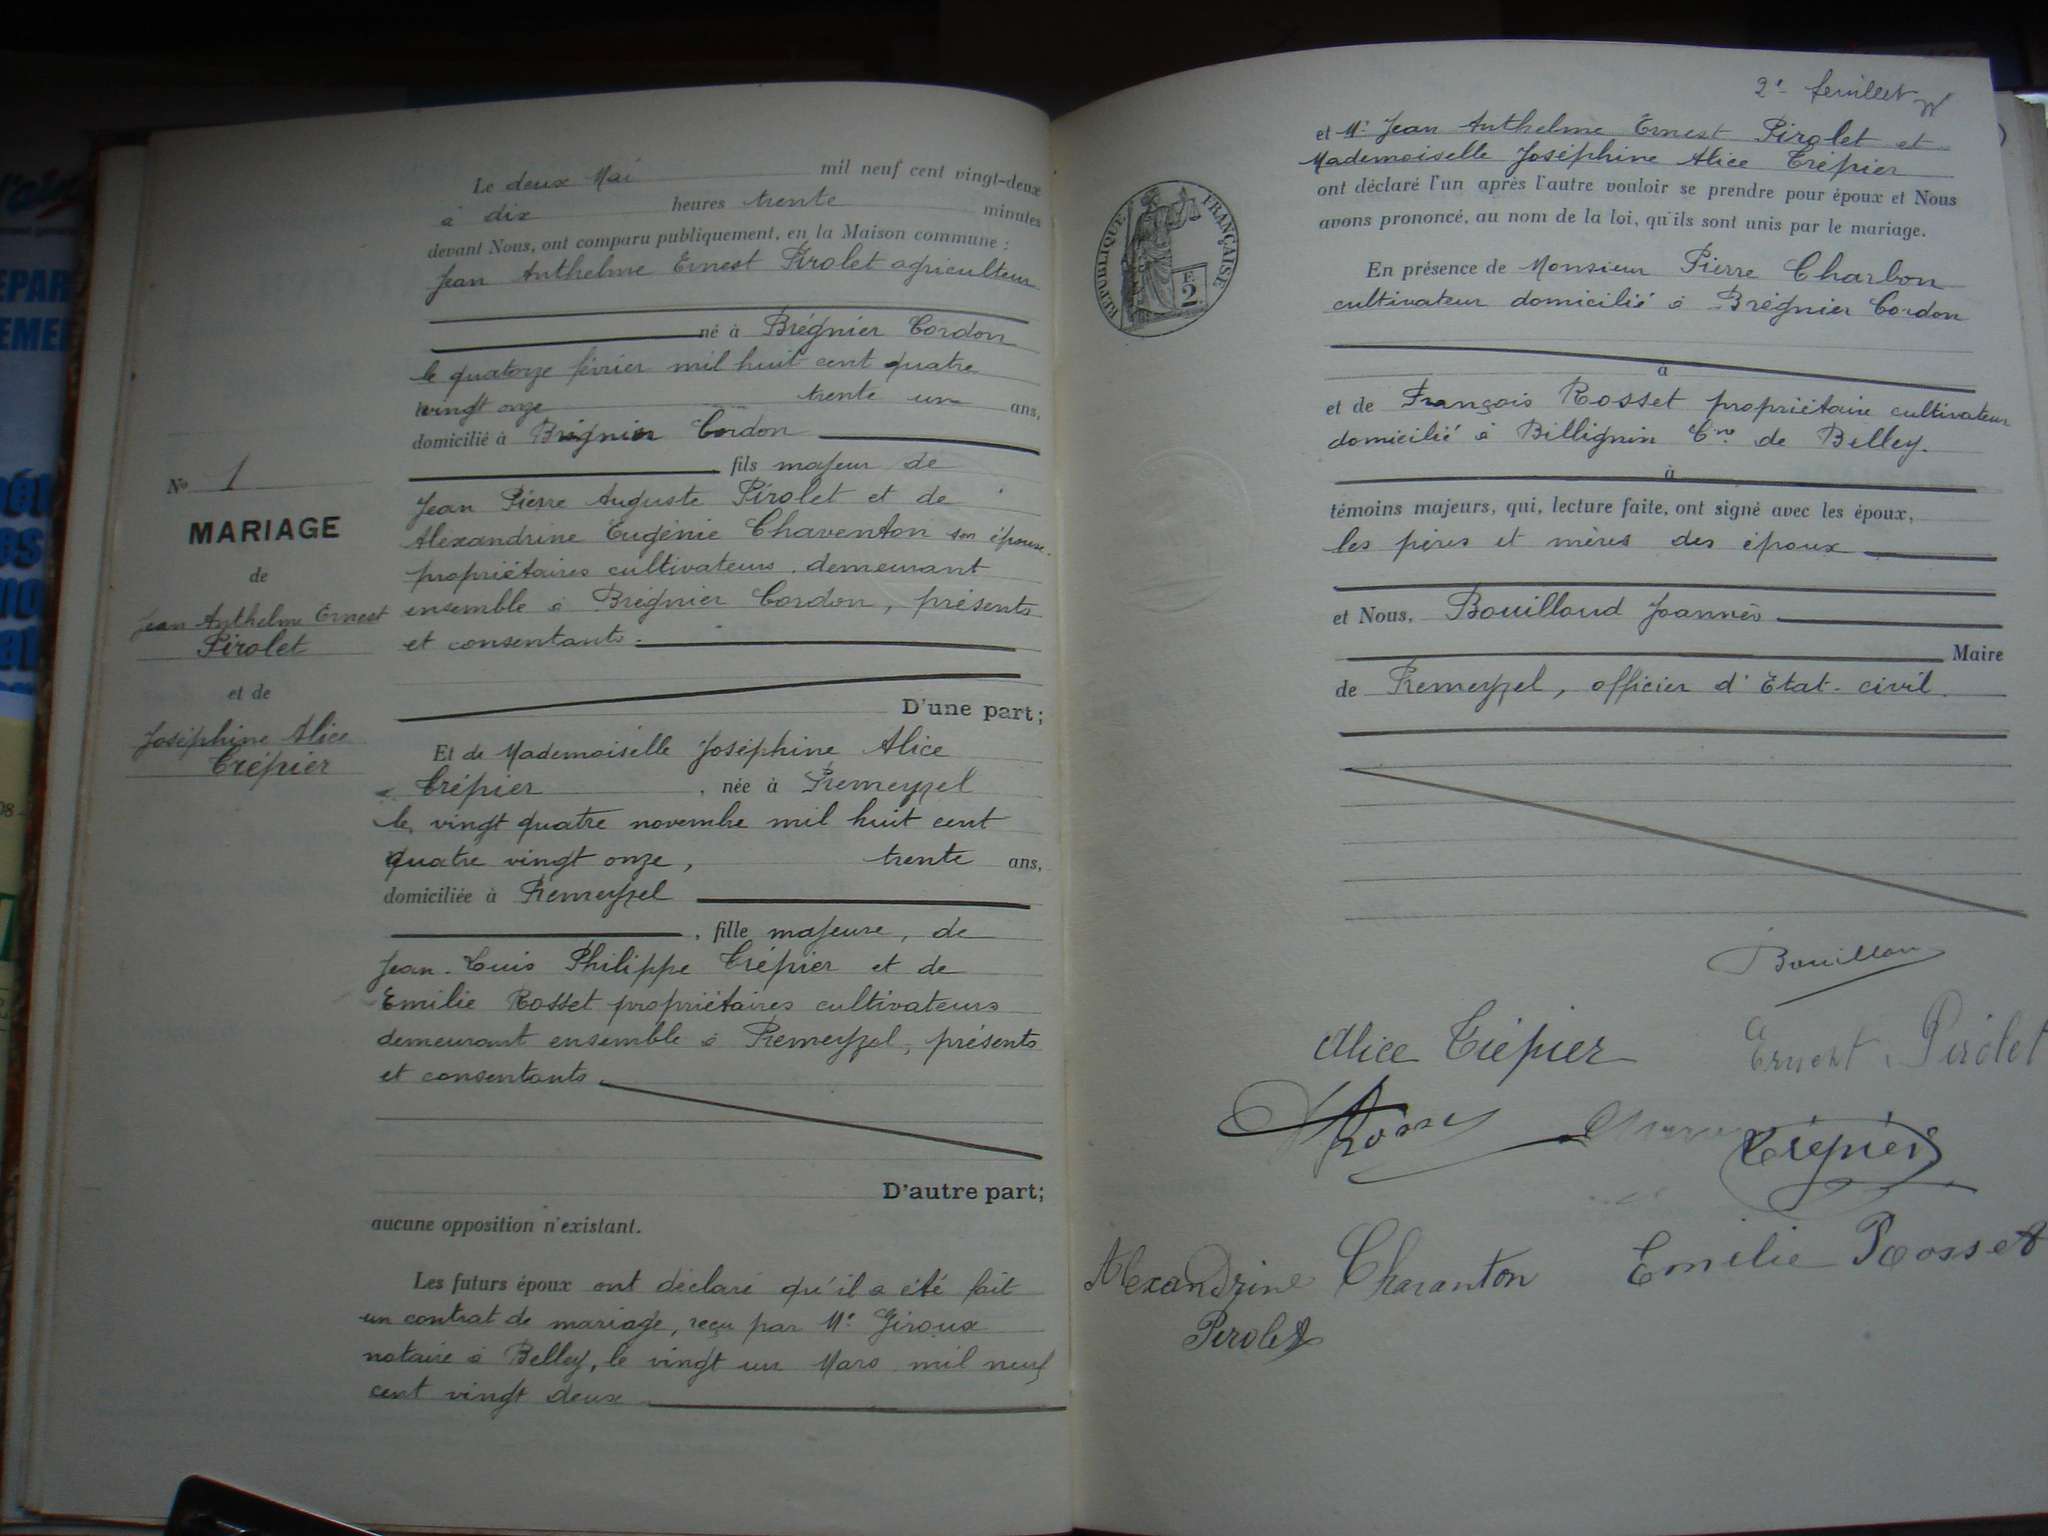 Le deux Mai mil neuf cent vingt-deux
à dix heures trente minutes
devant Nous, ont comparu publiquement, en la Maison commune :
Jean Anthelme Ernest Pirolet agriculteur
né à Brégnier Cordon
le quatorze février mil huit cent quatre
vingt onze trente un ans,
domicilié à Brégnier Cordon
fils majeur de
Jean Pierre Auguste Pirolet et de
Alexandrine Eugénie Chaventon son épouse.
propriétaires cultivateurs demeurant
ensemble à Brégnier Cordon, présents
et consentants.
D'une part;
Et de Mademoiselle Joséphine Alice
Trépier, née à Premeyzel
le vingt quatre novembre mil huit cent
quatre vingt onze, trente ans,
domiciliée à Premeyzel
, fille majeure, de
Jean-Louis Philippe Trépier et de
Emilie Rosset propriétaires cultivateurs
demeurant ensemble à Premeyzel, présents
et consentants
D'autre part;
aucune opposition n'existant.
Les futurs époux ont déclaré qu'il a été fait
un contrat de mariage, reçu par Me Giroux
notaire à Belley, le vingt un Mars mil neuf
cent vingt deux
No 1
MARIAGE
de
Jean Anthelme Ernest
Pirolet
et de
Joséphine Alice
Trépier
2e feuillet
et Mr Jean Anthelme Ernest Pirolet et
Mademoiselle Joséphine Alice Trépier
ont déclaré l'un après l'autre vouloir se prendre pour époux et Nous
avons prononcé, au nom de la loi, qu'ils sont unis par le mariage.
RÉPUBLIQUE FRANÇAISE
E
2
En présence de Monsieur Pierre Charbon
cultivateur domicilié à Brégnier Cordon
à
et de François Rosset propriétaire cultivateur
domicilié à Billignin Cne de Belley.
à
témoins majeurs, qui, lecture faite, ont signé avec les époux,
les pères et mères des époux
et Nous, Bouilloud Joannès
Maire
de Premeyzel, officier d'Etat-civil.
Alice Trépier
Ernest Pirolet
Trépier
Alexandrine Charanton
Emilie Rosset
Pirolet